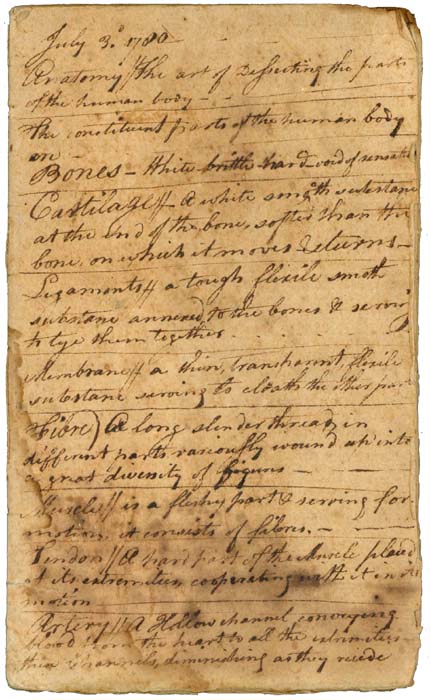 July 3d. 1780
Anatomy // the art of Dissecting the parts
of the human body —
The constituent parts of the human body
are —
Bones — White brittle hard void of sensatn
Cartilage // A white smooth substane
at the end of the bone, softer than the
bone, on which it moves & turns —
Ligaments // a tough flexile smoth
substane annexed, to the bones & serving
to tye them together
Membrane // a thin, transparant, flexile
substane serving to cloath the other part
Fibre) A long slender thread, in
different parts variously wound up into
a great diversity of figures —
Muscle // is a fleshy part & serving for
motion, it consists of fibres. —
Tendon // A hard part of the Muscle placed
at its extremities, cooperating with it in its
motion
Artery // A Hollow channel conveying
blood from the heart to all the extremities
these channels, diminishing as they recede